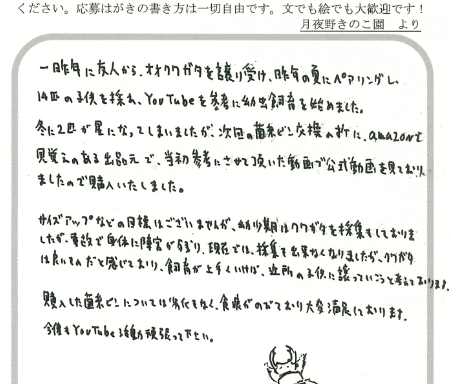 ください。応募はがきの書き方は一切自由です。文でも絵でも大歓迎です！
月夜野きのこ園　より
一昨年に友人から、オオクワガタを譲り受け、昨年の夏にペアリングし、
14匹の子供を採れ、YouTubeを参考に幼虫飼育を始めました。
冬に2匹が星になってしまいましたが、次回の菌糸ビン交換の折に、amazonで
見覚えのある出品元で、当初参考にさせて頂いた動画で公式動画を見ており
ましたので購入いたしました。
サイズアップなどの目標はございませんが、幼少期はクワガタを採集もしておりま
したが、事故で身体に障害が残り、現在では、採集も出来なくなりましたが、クワガタ
は良いものだと感じており、飼育が上手くいけば、近所の子供に譲っていこうと考えております。
購入した菌糸ビンについては劣化もなく、食痕がのびており大変満足しております。
今後もYouTube活動頑張って下さい。